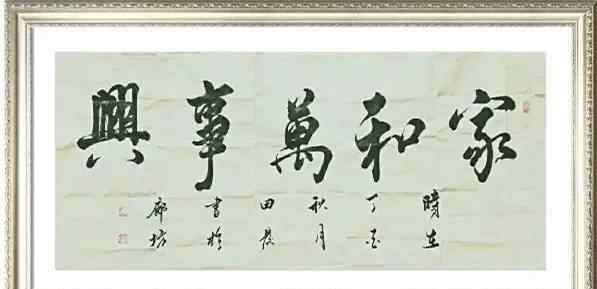 家和萬事興
時在
丁酉
秋月
田
書於
廊坊